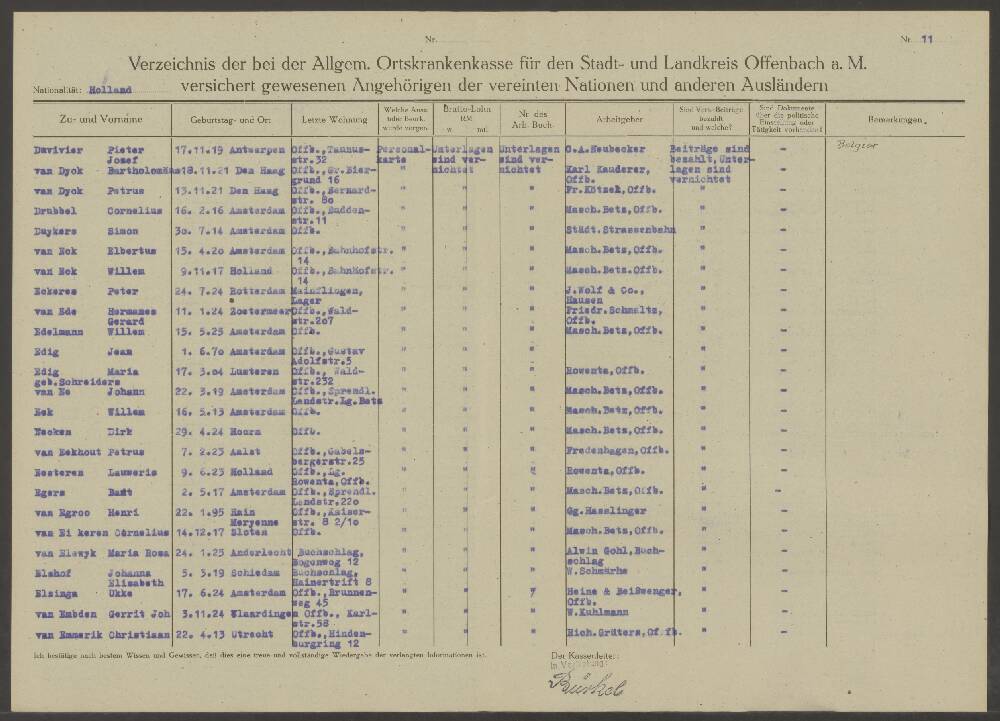 Nr. Nr. 11
Verzeichnis der bei der Allgem. Ortskrankenkasse für den Stadt- und Landkreis Offenbach a. M.
Nationalität: Holland versichert gewesenen Angehörigen der vereinten Nationen und anderen Ausländern
Zu- und Vorname Geburtstag- und Ort Letzte Wohnung Brutto-Lohn RM Nr. des Arb.-Buch. Arbeitgeber Sind Vers.-Beiträge bezahlt und welche? Sind Dokumente über die politische Einstellung oder Tätigkeit vorhanden? Bemerkungen
Davivier Pieter 17.11.19 Antwerpen Offb.,Taunus- Personal- Unterlagen Unterlagen C.A.Heubecker Beiträge sind - Belgier
Josef str.32 karte sind ver- sind ver- bezahlt,Unter-
van Dyck Bartholomäus 18.11.21 Den Haag Offb.,Gr.Bier- " nichtet nichtet Karl Kauderer, lagen sind -
grund 16 Offb. vernichtet
van Dyck Petrus 13.11.21 Den Haag Offb.,Bernard- " " " Fr.Kötzel,Offb. " -
str. 80
Drubbel Cornelius 16. 2.16 Amsterdam Offb.,Budden- " " " Masch.Betz,Offb. " -
str.11
Duykers Simon 30. 7.14 Amsterdam Offb. " " " Städt.Strassenbahn " -
van Eck Elbertus 15. 4.20 Amsterdam Offb.,Bahnhofstr. " " " Masch.Betz,Offb. " -
14
van Eck Willem 9.11.17 Holland Offb.,Bahnhofstr. " " " Masch.Betz.Offb. " -
14
Eckeres Peter 24. 7.24 Rotterdam Mainflingen, " " " J.Wolf & Co., " -
Lager Hausen
van Ede Hermanes 11. 1.24 Zoetermeer Offb.,Wald- " " " Friedr.Schmaltz, " -
Gerard str.207 Offb.
Edelmann Willem 15. 5.25 Amsterdam Offb. " " " Masch.Betz,Offb. " -
Edig Jean 1. 6.70 Amsterdam Offb.,Gustav " " " " -
Adolfstr.5
Edig Maria 17. 3.04 Lusteren Offb., Wald- " " " Rowenta,Offb. " -
geb.Schreiders str.232
van Ee Johann 22. 3.19 Amsterdam Offb.,Sprendl. " " " Masch.Betz,Offb. " -
Landstr.Lg.Betz
Eek Willem 16. 5.13 Amsterdam Offb. " " " Masch.Betz,Offb. " -
Eecken Dirk 29. 4.24 Hoorn Offb. " " " Masch.Betz,Offb. " -
van Eekhout Petrus 7. 2.23 Aalst Offb.,Gabels- " " " Fredenhagen,Offb. " -
bergerstr.25
Eesteren Lauweris 9. 6.23 Holland Offb.,Lg. " " " Rowenta,Offb. " -
Rowenta,Offb.
Egers Bant 2. 5.17 Amsterdam Offb.,Sprendl. " " " Masch.Betz,Offb. " -
Landstr.220
van Egroo Henri 22. 1.95 Hain Offb.,Kaiser- " " " Gg.Hasslinger " -
Meryenne str. 8 2/10
van Ei keren Cornelius 14.12.17 Sloten Offb. " " " Masch.Betz,Offb. " -
van Elewyk Maria Rosa 24. 1.25 Anderlecht Buchschlag, " " " Alwin Gohl,Buch- " -
Bogenweg 12 schlag
Elshof Johanna 5. 3.19 Schiedam Buchschlag, " " " W.Schmärhs " -
Elizabeth Hainertrift 8
Elsinga Okke 17. 6.24 Amsterdam Offb.,Brunnen- " " " Heine & Beißwenger, " -
weg 45 Offb.
van Embden Gerrit Joh 3.11.24 Vlaardingen Offb., Karl- " " " W.Kuhlmann " -
str.58
van Emmerik Christiaan 22. 4.13 Utrecht Offb.,Hinden- " " " Rich.Grüters,Offb. " -
burgring 12
Ich bestätige nach bestem Wissen und Gewissen, daß dies eine treue und vollständige Wiedergabe der verlangten Informationen ist. Der Kassenleiter:
In Vertretung: